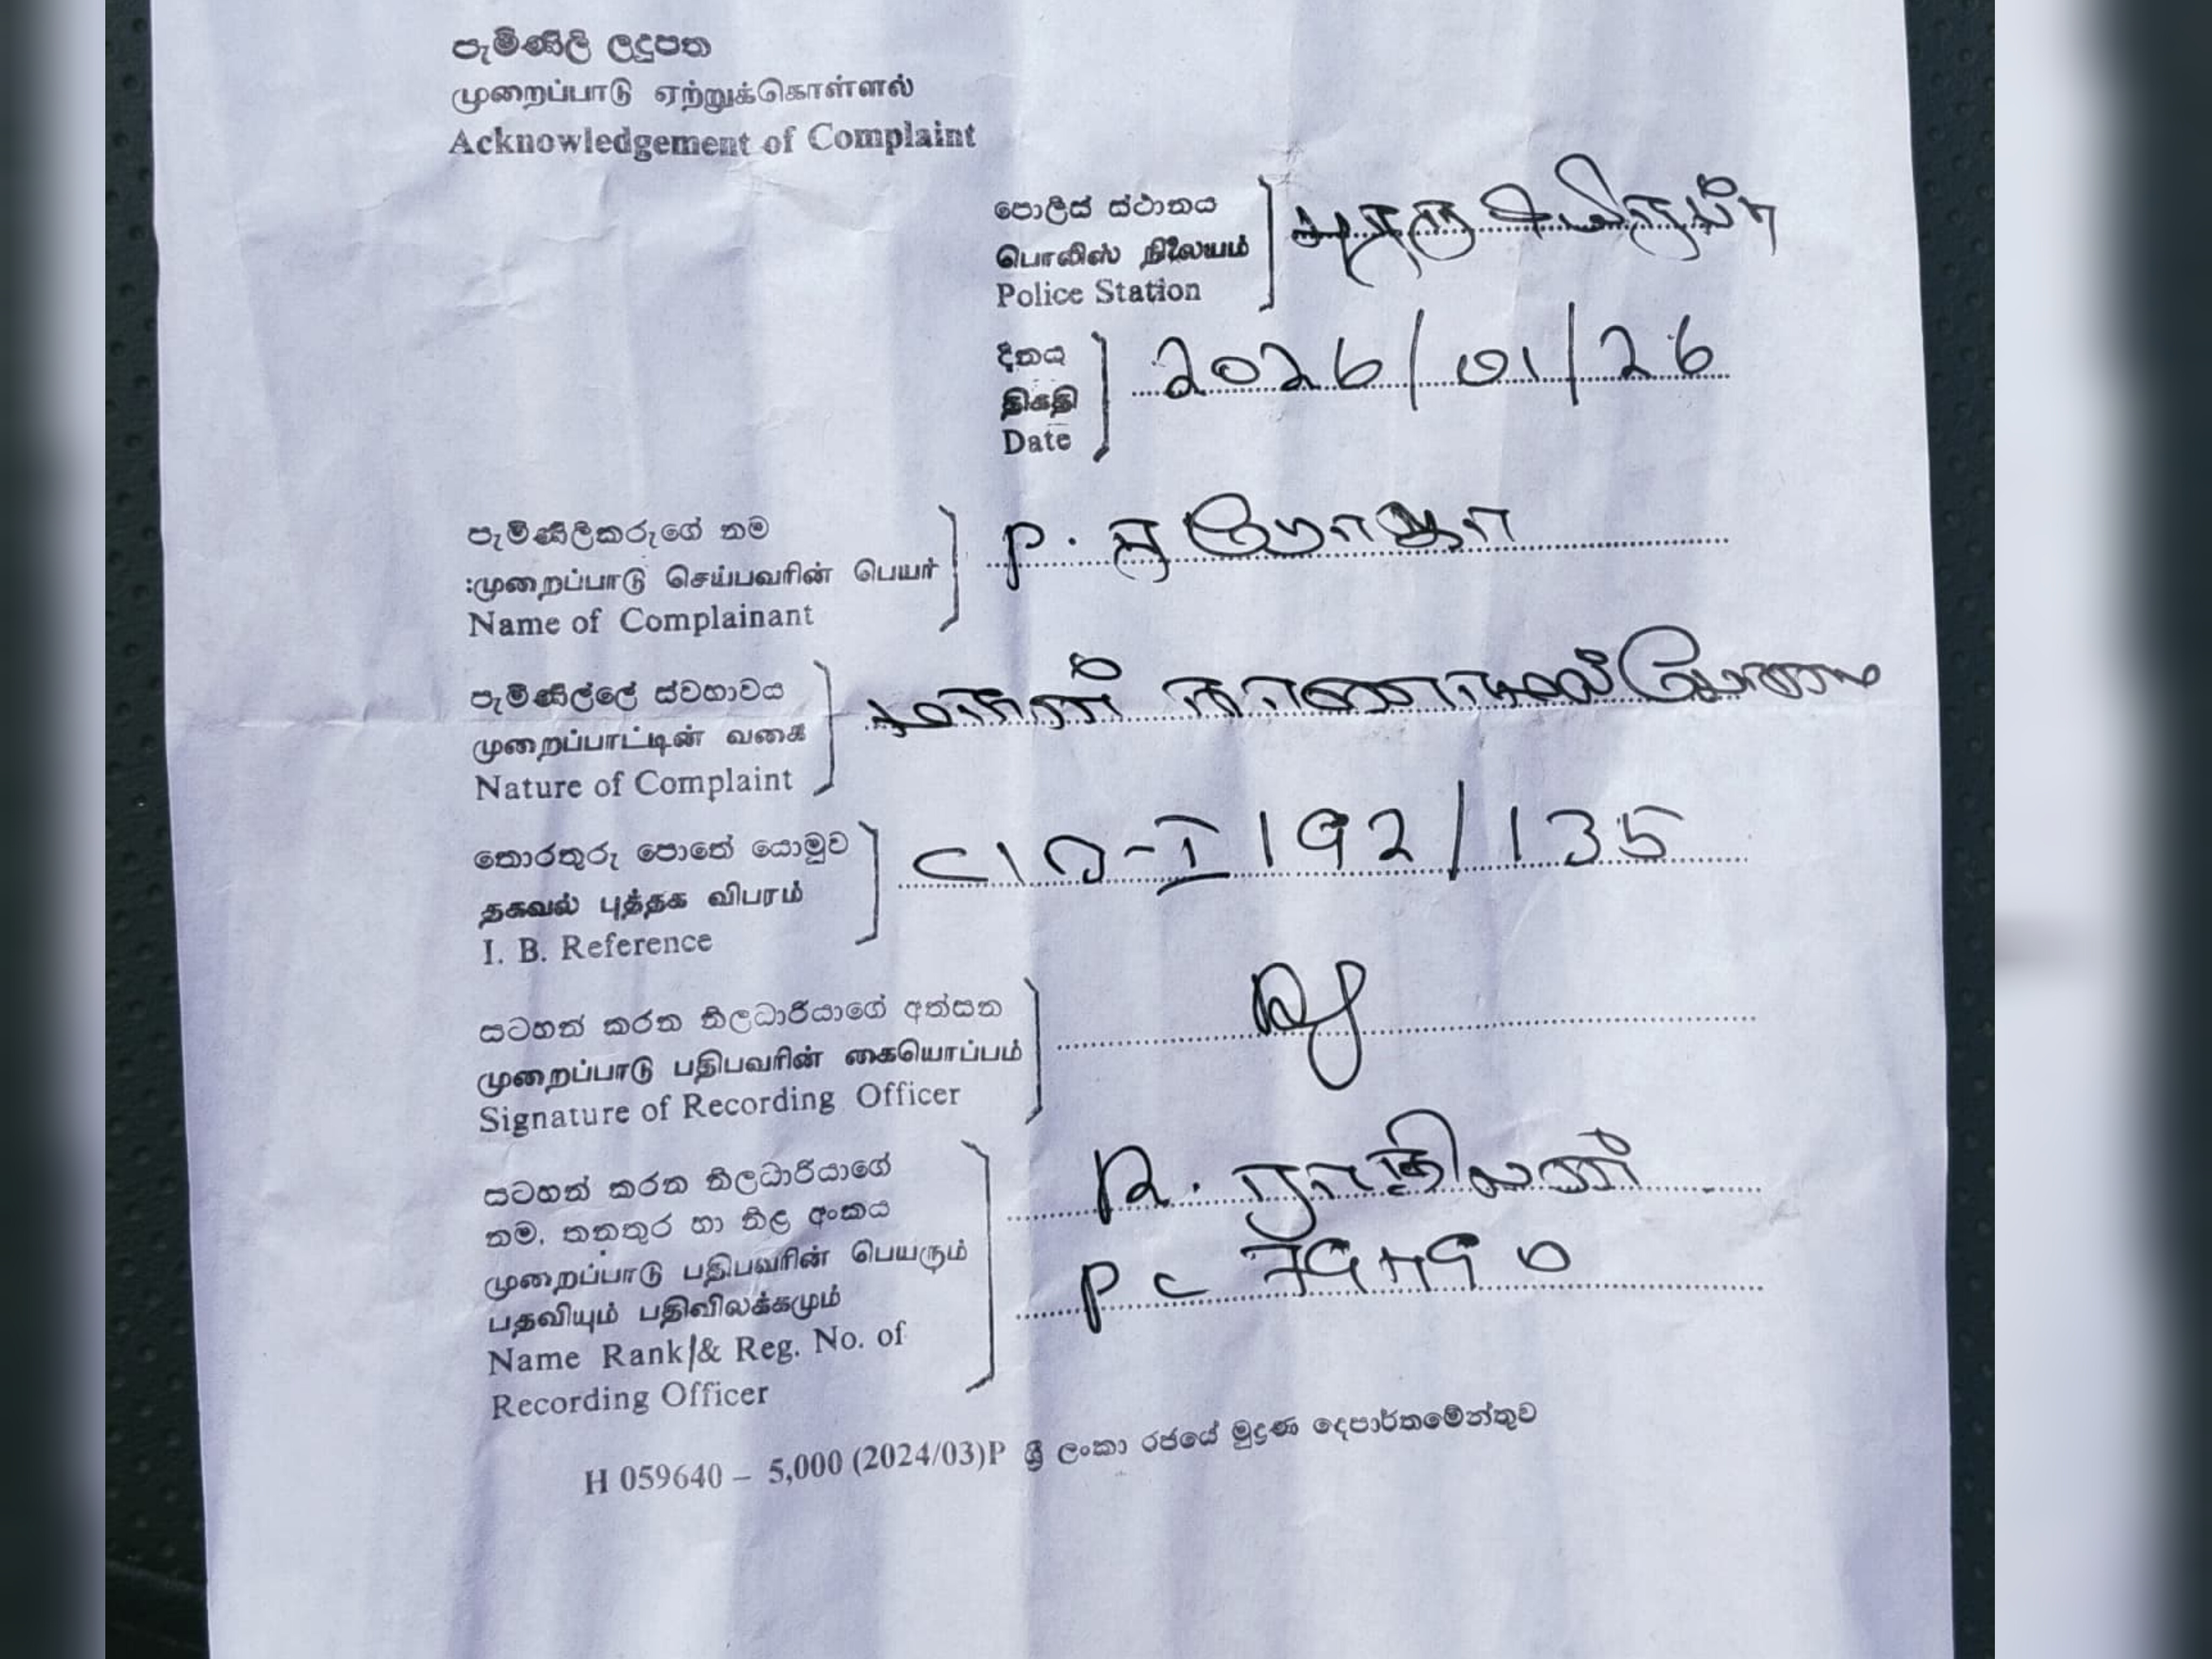 පැමිණිලි ලදුපත
முறைப்பாடு ஏற்றுக்கொள்ளல்
Acknowledgement of Complaint
පොලිස් ස්ථානය
பொலிஸ் நிலையம்
Police Station
දිනය
திகதி
Date
2026/01/26
පැමිණිලිකරුගේ නම
:முறைப்பாடு செய்பவரின் பெயர்
Name of Complainant
P.
පැමිණිල්ලේ ස්වභාවය
முறைப்பாட்டின் வகை
Nature of Complaint
மகன் காணாமல்போனமை
තොරතුරු පොතේ යොමුව
தகவல் புத்தக விபரம்
I. B. Reference
192/135
සටහන් කරන නිලධාරියාගේ අත්සන
முறைப்பாடு பதிபவரின் கையொப்பம்
Signature of Recording Officer
සටහන් කරන නිලධාරියාගේ
නම, තනතුර හා නිළ අංකය
முறைப்பாடு பதிபவரின் பெயரும்
பதவியும் பதிவிலக்கமும்
Name Rank/& Reg. No. of
Recording Officer
R.
PC 79490
H 059640 – 5,000 (2024/03)P ශ්‍රී ලංකා රජයේ මුද්‍රණ දෙපාර්තමේන්තුව